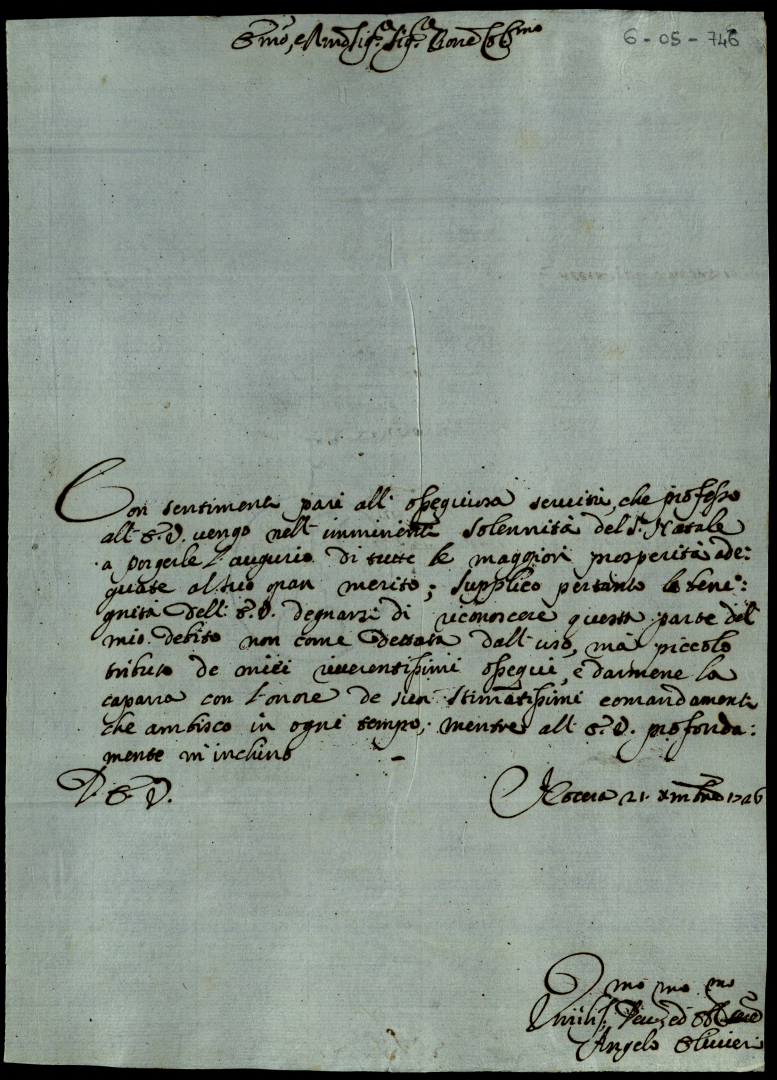 Emo, e Rmo Sig.re Sig.re Prone Colmo
6-05-746
Con sentimenti pari all' ossequiosa servitù, che professo
all' E. V. vengo nell' imminente solennità del S. Natale
a porgerle l'augurio di tutte le maggiori prosperità ade:
quate al suo gran merito; supplico pertanto la beni:
gnità dell' E. V. degnarsi di riconoscere questa parte del
mio debito non come dettata dall' uso, mà piccolo
tributo de miei riverentissimi ossequi, e darmene la
caparra con l'onore de suoi stimatissimi comandamenti
che ambisco in ogni tempo, mentre all' E. V. profonda:
mente m'inchino
D. E. V.
Nocera 21 Xmbre 1746
Umilis. Dev. ed Obl.
Angelo Olivieri